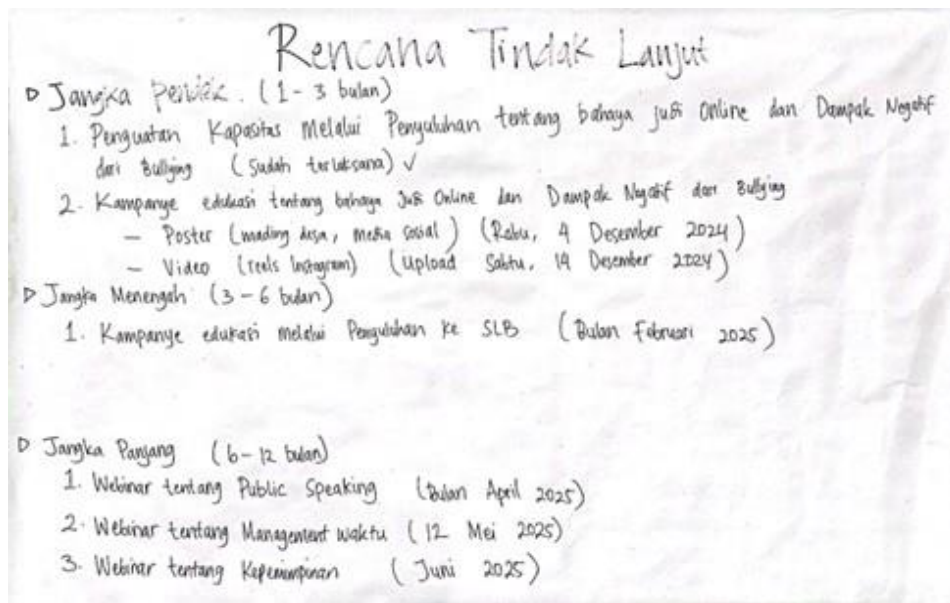 Rencana Tindak Lanjut
Jangka Pendek. (1 - 3 bulan)
1. Penguatan Kapasitas Melalui Penyuluhan tentang bahaya judi Online dan Dampak Negatif
dari Bullying (Sudah terlaksana) ✓
2. Kampanye edukasi tentang bahaya Judi Online dan Dampak Negatif dari Bullying
– Poster (mading desa, media sosial) (Rabu, 4 Desember 2024)
– Video (reels Instagram) (Upload Sabtu, 14 Desember 2024)
Jangka Menengah (3 – 6 bulan)
1. Kampanye edukasi melalui Penyuluhan ke SLB (Bulan Februari 2025)
Jangka Panjang (6 – 12 bulan)
1. Webinar tentang Public Speaking (Bulan April 2025)
2. Webinar tentang Management waktu (12 Mei 2025)
3. Webinar tentang Kepemimpinan (Juni 2025)